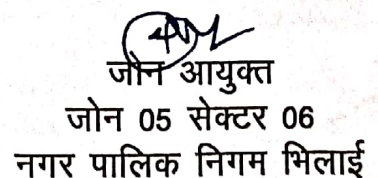 जोन आयुक्त
जोन 05 सेक्टर 06
नगर पालिक निगम भिलाई